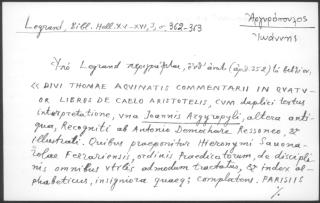 Legrand, Bibl. Hell. XV-XVI, 3, σ. 362-363
Ἀργυρόπουλος
Ἰωάννης
Ὑπὸ Legrand περιγράφεται, ἀριθ. 352) τὸ βιβλίον,
«DIVI THOMAE AQVINATIS COMMENTARII IN QVATV-
OR LIBROS DE CAELO ARISTOTELIS, cum duplici textus
interpretatione, vna Ioannis Argyropyli, altera anti-
qua, Recogniti ab Antonio Demochare Ressoneo, &
illustrati. Quibus praeponitur Hieronymi Sauona-
rolae Ferrariensis, ordinis Praedicatorum, de discipli-
nis omnibus vtilis admodum tractatus, & index al-
phabeticus, insigniora quaeq; complectens, PARISIIS
%